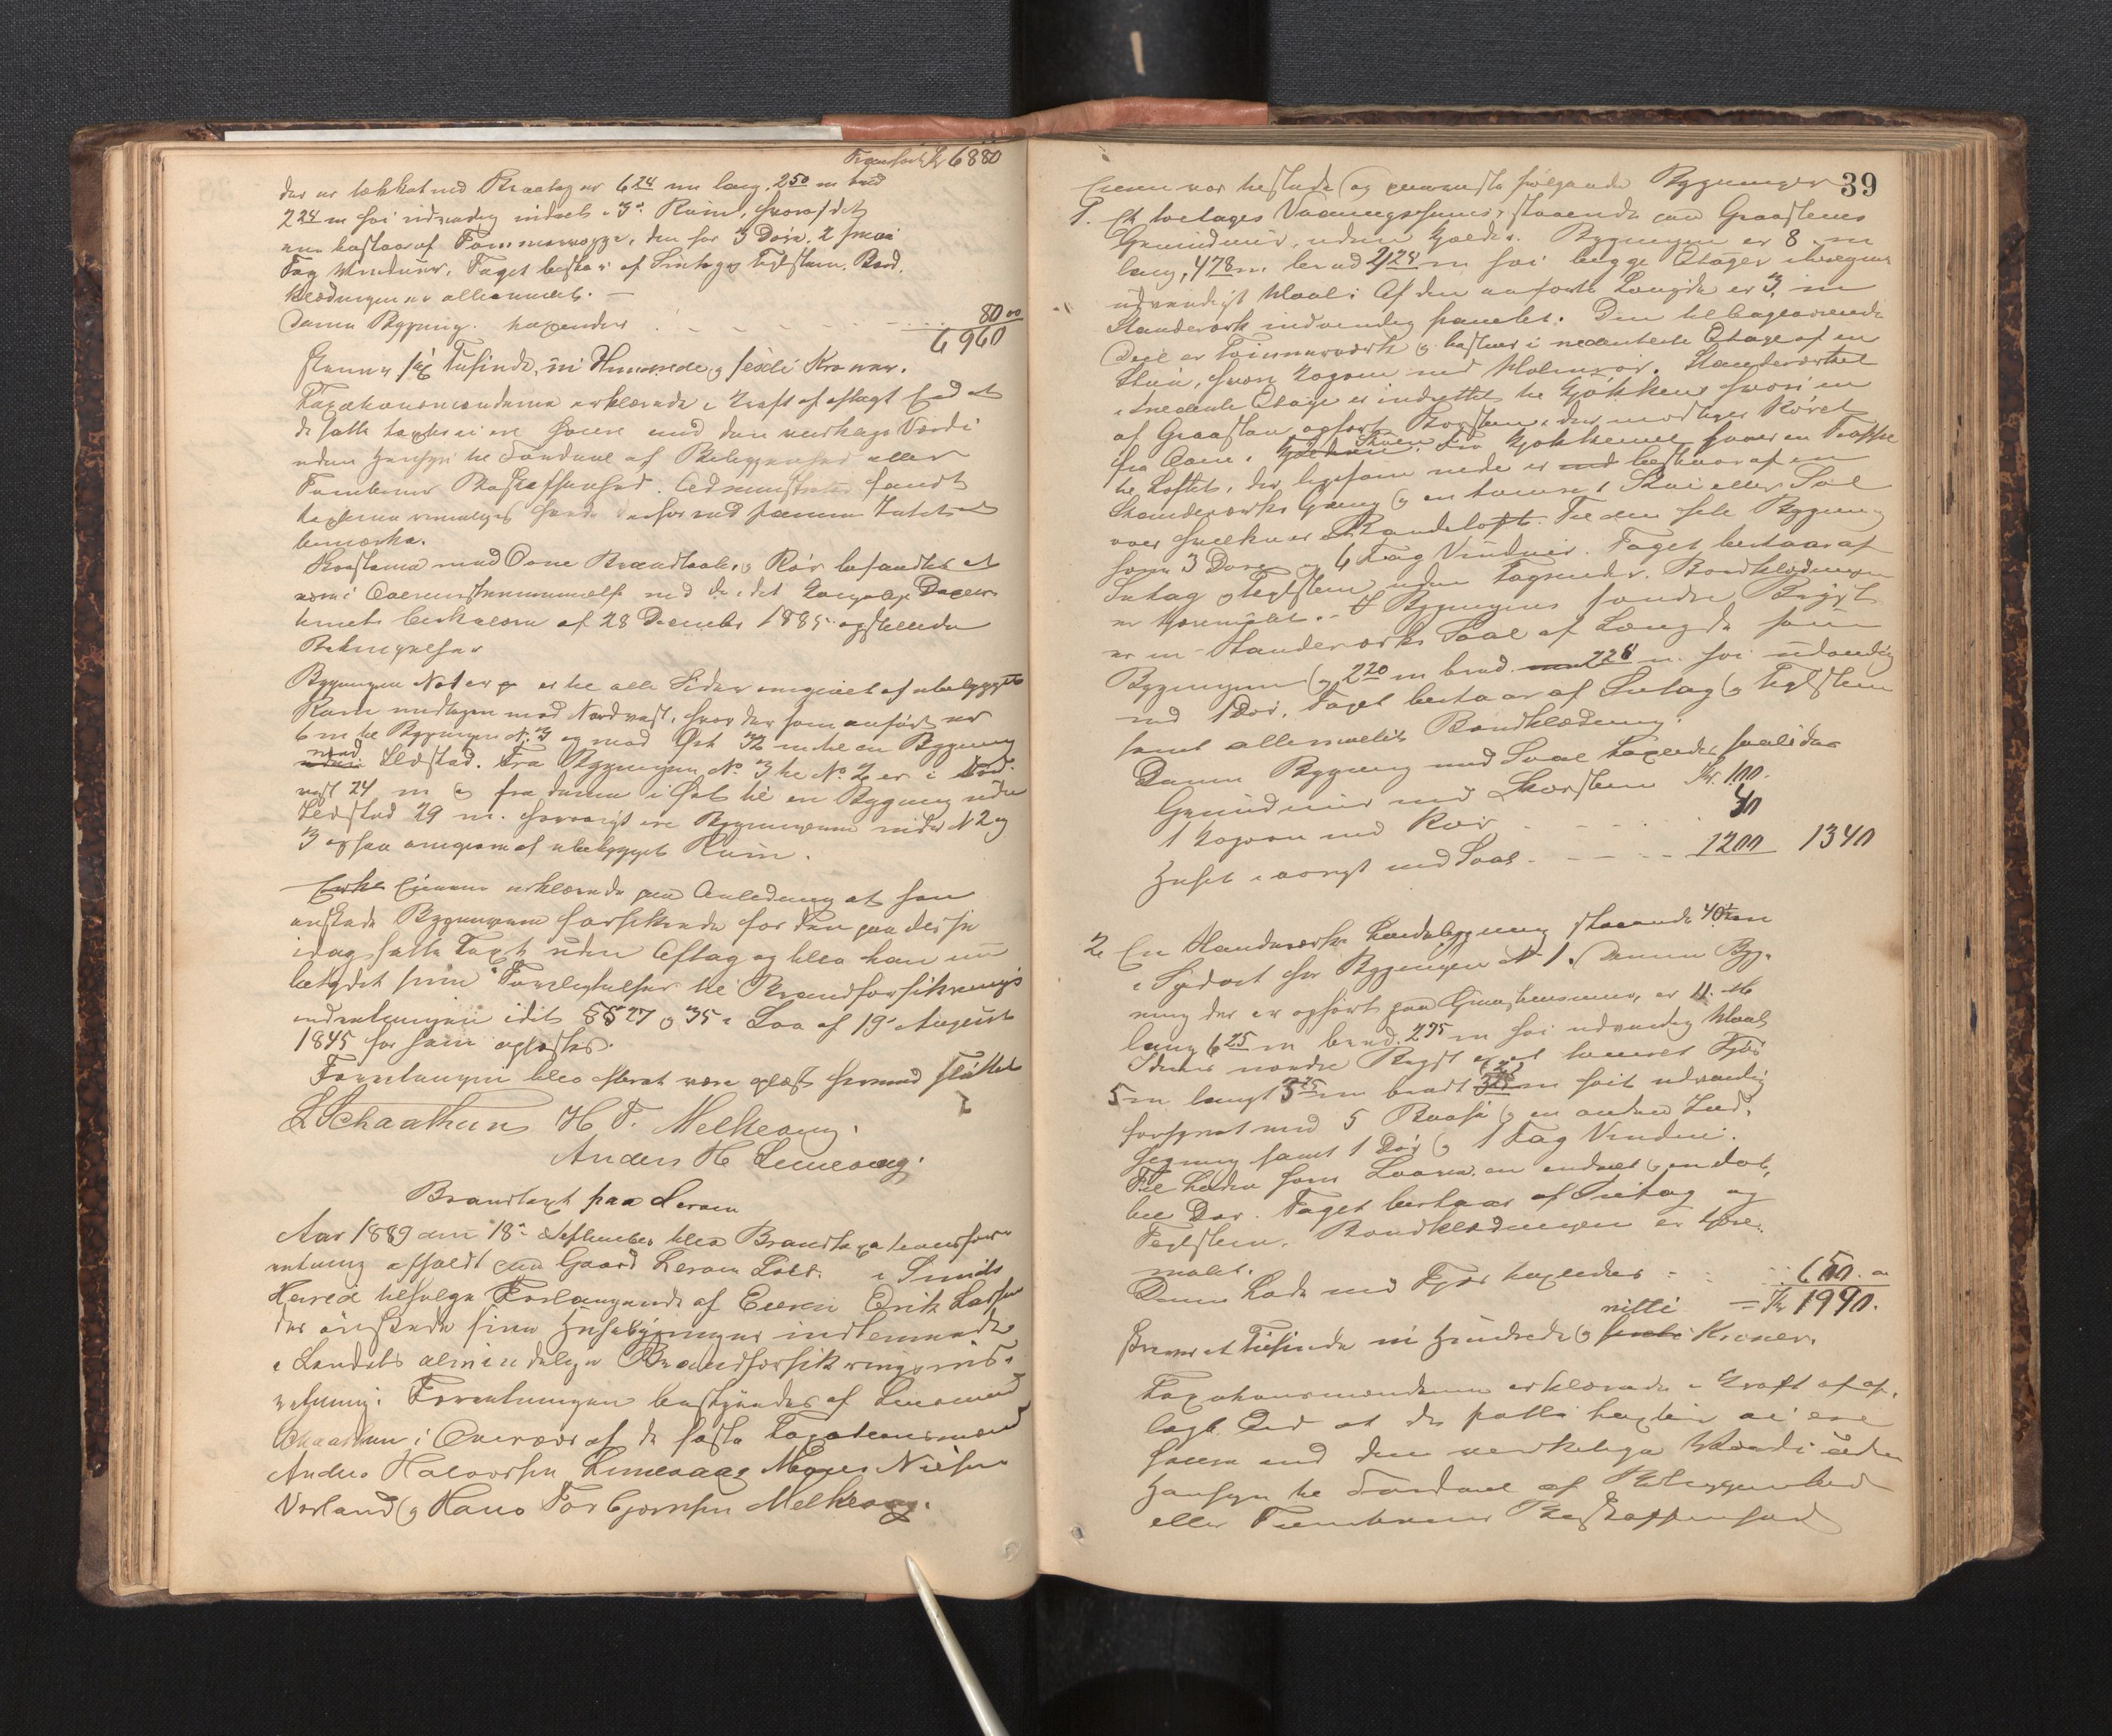 Transport Kr 6880
der er tækket med Braatag er 6 24 m lang, 2 50 m bred
2 24 m høi udvendig indrettet i 3de Rum, hvoraf det
ene bestaar af Tømmervægge, den har 3 Døre, 2 smaa
Fag Vinduer. Taget bestaar af Sutag og Teglsteen. Bord-
klædningen er alleenmalet. —
Denne Bygning taxeredes 80 00
6960
Skriver sex Tusinde, ni Hundrede og sexti Kroner.
Taxationsmændene erklærede i Kraft af aflagt Eed at
de satte taxter ei ere høiere end den virkelige Værdi
uden Hensyn til Fordeel af Beliggenhed eller
Tomtens Beskaffenhed. Administrator fandt
taxterne rimelige havde derfor ved samme Intet at
bemærke.
Skorstene med Ovne Brandtaler og Rør befandtes at
være i Overensstemmelse med de i det Kongelige Departe-
ments Circulære af 28 December 1885 opstillede
Betingelser
Bygningen No 1 er til alle Sider omgivet af ubebygget
Rum undtagen mod Nordvest, hvor der som anført er
6 m til Bygningen N. 3 og mod Øst 32 m til en Bygning
med Ildsted. Fra Bygningen No 3 til No 2 er i Nord-
vest 24 m og fra denne i Øst til en Bygning uden
Ildsted 29 m. forøvrigt ere Bygningerne under N 2 og
3 ogsaa omgivne af ubebygget Rum.
Eieren erklærede paa Anledning at han
ønskede Bygningerne forsikrede for den paa disse
idag satte Taxt uden Aftag og blev han nu
betydet sine Forpligtelser til Brandforsikrings
indretningen idet §§ 27 og 35 i Lov af 19de August
1845 for ham oplæstes.
Forretningen blev efter at være oplæst hermed sluttet
L Schaathun H T. Melkevig.
Anders H Lunevaag.
Brandtaxt paa Leroen
Aar 1889 den 18de September blev Brandtaxationsfor-
retning afholdt paa Gaard Leroen i Sunds
Herred tilfølge Forlangende af Eieren Erik Larsen
der ønskede sine Husebygninger indlemmede
i Landets almindelige Brandforsikringsind-
retning. Forretningen bestyredes af Lensmand
Schaathun i Overvær af de faste Taxationsmænd
Anders Halvorsen Lunevaag Mons Nielsen
Vorland og Hans Torbjørnsen Melkevig.
39
Eieren var tilstede og paaviste følgende Bygninger
1. Et toetages Vaaningshuus, staaende paa Graasteens
Grundmur, uden Kjelder. Bygningen er 8 m
lang, 4 78 m bred 4 28 m høi begge Etager iberegnet
udvendigt Maal. Af den anførte Længde er 3 m
Standerværk indvendig panelet. Den tilbageværende
Deel er Tømmerværk og bestaar i nederste Etage af en
Stue, hvori Kogovn med Malmrør. I Standerværket
i nederste Etage er indrettet et Kjøkken hvori en
af Graasteen opført Skorsteen, der modtager Røret
fra Ovnen i Stuen. Fra Kjøkkenet fører en Trappe
til Loftet, der ligesom nede bestaar af en
Standerværks Gang og en tømret Stue eller Sal
over hvilken er Bordeloft. Til den hele Bygning
hører 3 Døre og 6 Fag Vinduer. Taget bestaar af
Sutag og Teglsteen uden Tagrender. Bordklædningen
er tjæremalet. – Ved Bygningens søndre Bryst
er en Standerværks Sval af Længde som
Bygningen og 2 20 m bred 2 28 m høi udvendig
med 1 Dør. Taget bestaar af Sutag og Teglsteen
samt alleenmalet Bordklædning.
Denne Bygning med Sval taxeredes saaledes
Grundmur med Skorsteen Kr. 100.
1 Kogovn med Rør 40
Huset i øvrigt med Sval 1200 1340
2. En Standerværks Ladebygning staaende 40 m
i Sydost for Bygningen N 1. Denne Byg-
ning der er opført paa Graasteensmur, er 11 M
lang 6 25 m bred 2 95 m høi udvendig Maal
I dennes nordre Bryst er et tømret Fjøs
5 m langt 3 25 m bredt m høit udvendig
forsynet med 5 Baase og en anden Ind-
hegning samt 1 Dør og 1 Fag Vindue.
Til Laden hører Laave, en enkelt og en dob-
belt Dør. Taget bestaar af Sutag og
Teglsteen. Bordklædningen er tjære-
malet.
Denne Lade med Fjøs taxeredes 650.
= Kr 1990.
Skriver et Tusinde ni Hundrede og nitti Kroner.
Taxationsmændene erklærede i Kraft af af-
lagt Eed at de satte taxter ei ere
høiere end den virkelige Værdi uden
Hensyn til Fordeel af Beliggenhed
eller Tomtens Beskaffenhed